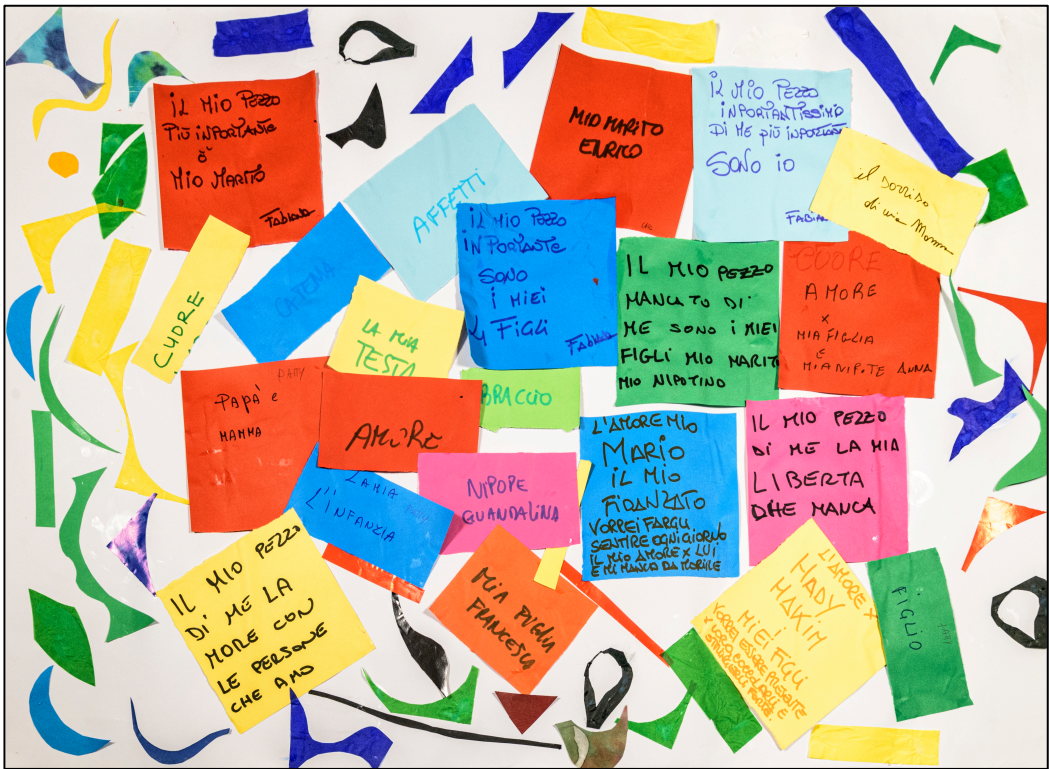 IL MIO PEZZO
PIÙ INPORTANTE
È
MIO MARITO
Fabiana
AFFETTI
MIO MARITO
ENRICO
IL MIO PEZZO
INPORTANTISSIMO
DI ME PIÙ INPORTANTE
SONO IO
FABIANA
il sorriso
di mia Mamma
CUORE
CATENA
IL MIO PEZZO
INPORTANTE
SONO
I MIEI
4 FIGLI
FABIANA
IL MIO PEZZO
MANCATO DI
ME SONO I MIEI
FIGLI MIO MARITO
MIO NIPOTINO
CUORE
AMORE
x
MIA FIGLIA
E
MIA NIPOTE ANNA
LA MIA
TESTA
PAPÀ e
MAMMA
AMORE
BRACCIO
LA MIA
L'INFANZIA
NIPOPE
GUANDALINA
L'AMORE MIO
MARIO
IL MIO
FIDANZATO
VORREI FARGLI
SENTIRE OGNI GIORNO
IL MIO AMORE X LUI
E MI MANCA DA MORILE
IL MIO PEZZO
DI ME LA MIA
LIBERTA
DHE MANCA
IL MIO PEZZO
DI ME LA
MORE CON
LE PERSONE
CHE AMO
MIA FIGLIA
FRANCESCA
L'AMORE X
HADY
HAKIM
I MIEI FIGLI
VORREI ESSERE PRESENTE
X LORO
FIGLIO